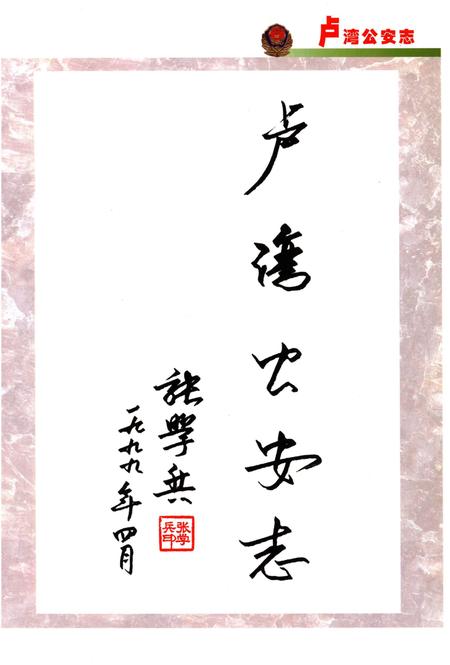 卢湾公安志
卢湾公安志
张学兵
一九九九年四月
张学
兵印